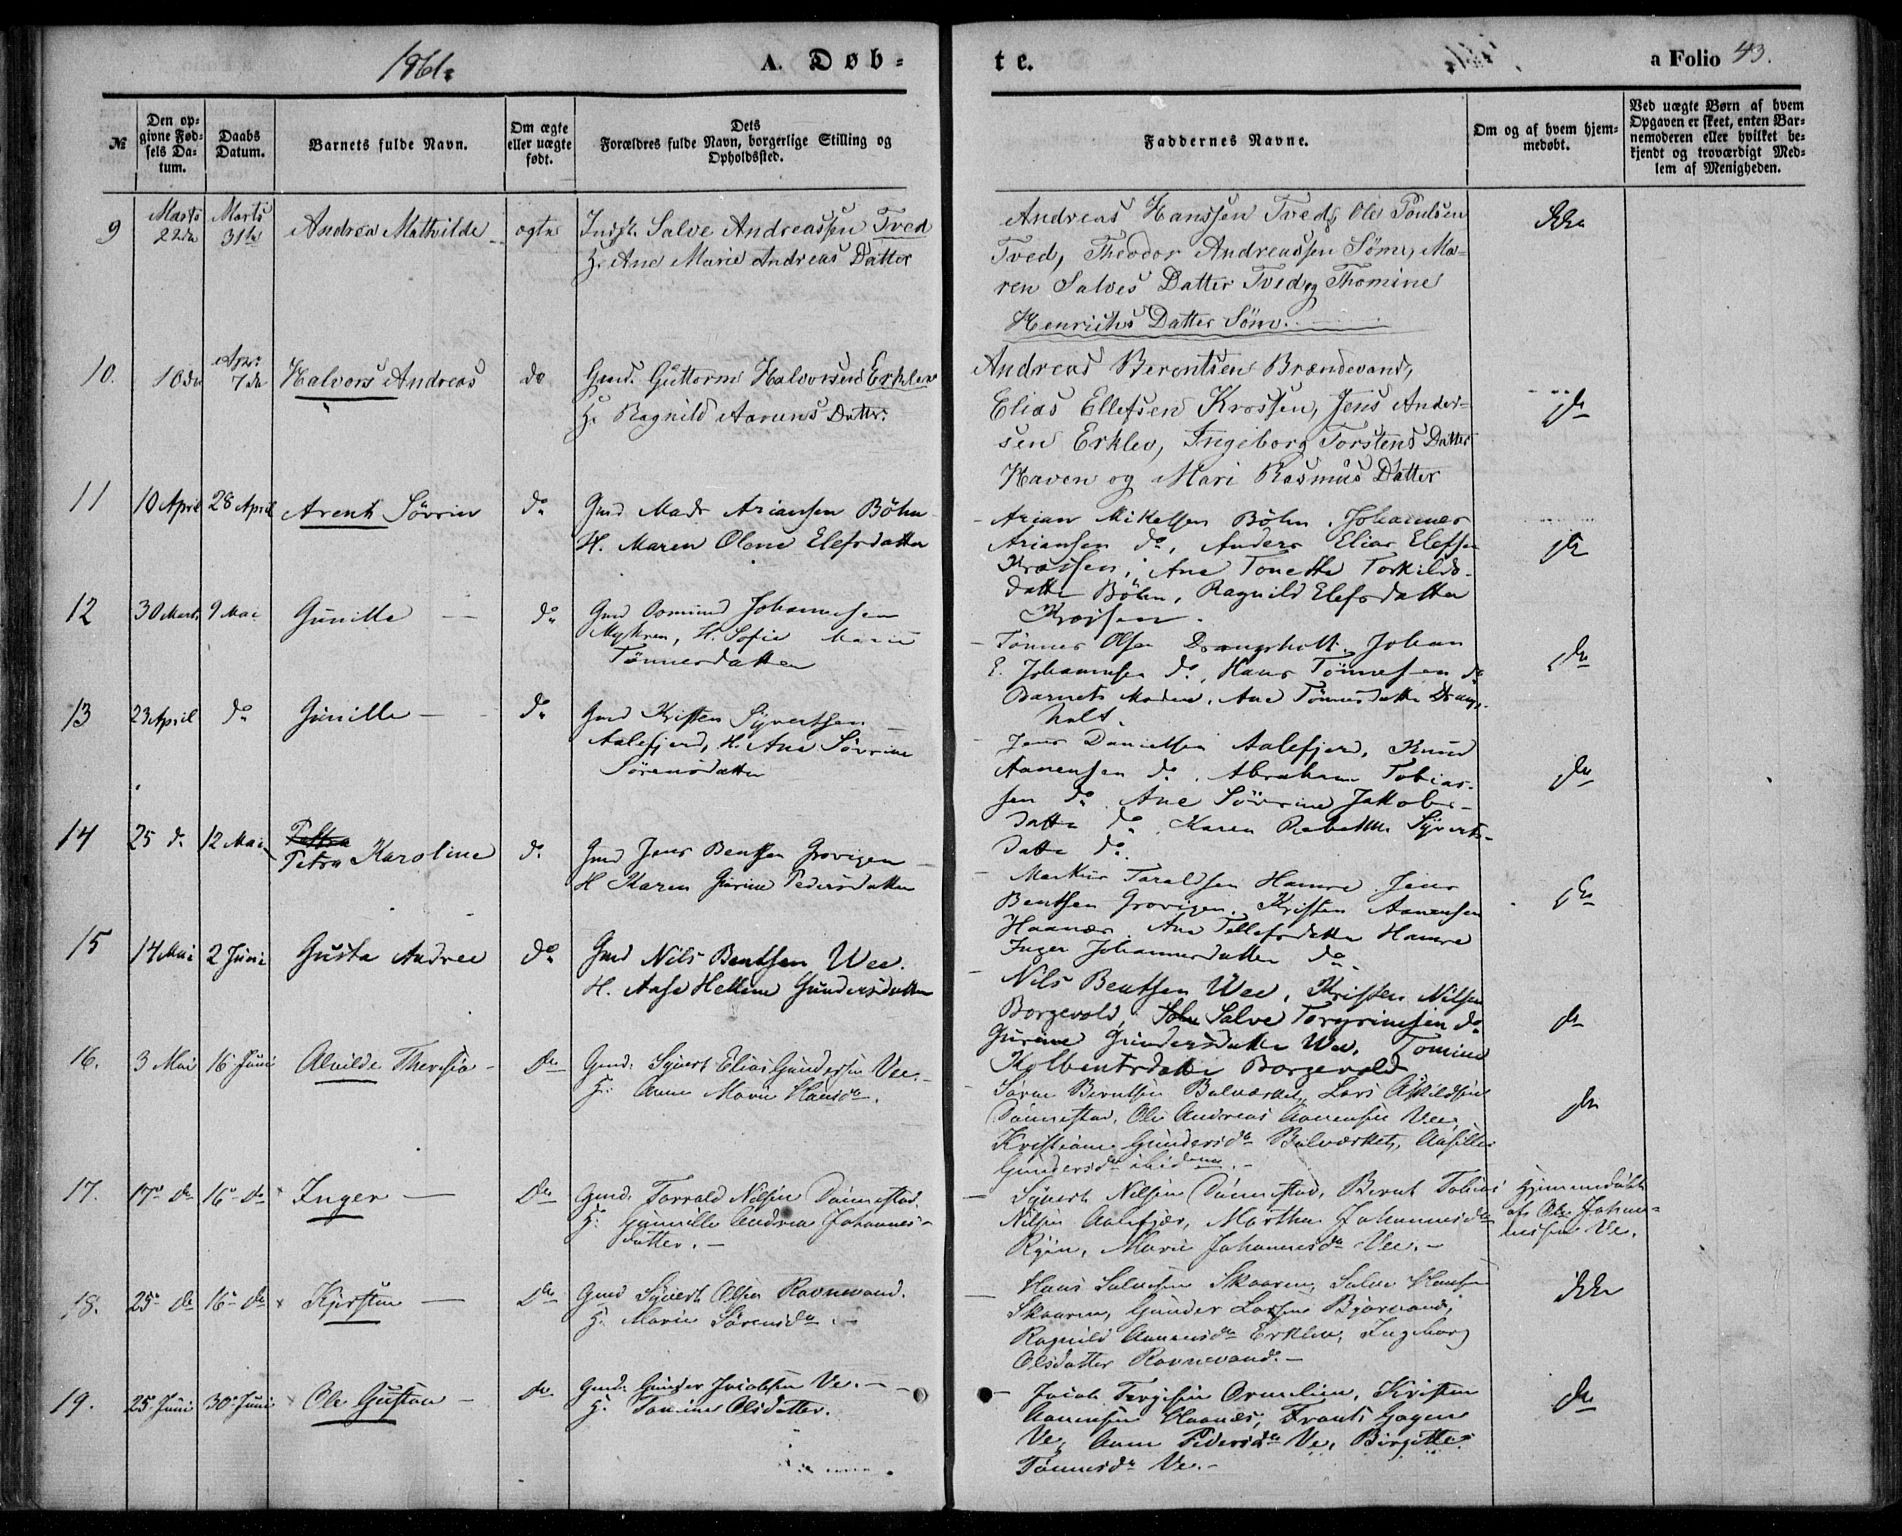 1861.
A. Døb-
te.
a Folio 43.
№
Den op-
givne Fød-
sels Da-
tum.
Daabs
Datum.
Barnets fulde Navn.
Om ægte
eller uægte
født.
Dets
Forældres fulde Navn, borgerlige Stilling og
Opholdssted.
Faddernes Navne.
Om og af hvem hjem-
medøbt.
Ved uægte Børn af hvem
Opgaven er skeet, enten Bar-
nemoderen eller hvilket be-
kjendt og troværdigt Med-
lem af Menigheden.
9
Marts
22de
Marts
31te
Andrea Mathilde
ægte
Indst. Salve Andreassen Tved
H. Ane Marie Andreas Datter
Andreas Hanssen Tved, Ole Poulsen
Tved, Theodor Andreassen Søm, Ma-
ren Salves Datter Tved og Thomine
Henrichs Datter Søm.
Ikke
10.
10de
Apr.
7de
Halvors Andreas
do
Gmd. Guttorm Halvorsen Erklev
H. Ragnild Aanuns Datter
Andreas Berentsen Brændevand,
Elias Ellefsen Krossen, Jens Ander-
sen Erklev, Ingeborg Torstens Datter
Haven og Mari Rasmus Datter
do
11
10 April
28 April
Arent Sövrin
do
Gmd Mads Ariansen Böhn
H. Maren Olene Elefsdatter
Arian Mikelsen Böhn, Johannes
Ariansen do, Anders Elias Elefsen
Krossen, Ane Tonette Torkilds-
datter Böhn, Ragnild Elefsdatter
Krossen.
do
12
30 Marts
9 Mai
Gunille
do
Gmd Osmund Johannesen
Myhren, H. Sofie Marie
Tönnesdatter
Tönnes Olsen Drangsholt, Johan
E. Johannsen do, Hans Tönnesen do
Barnets Moder, Ane Tönnesdatter Drangs-
holt.
do
13
23 April
do
Gunille
do
Gmd Kristen Syvertsen
Aalefjerd, H. Ane Sövrine
Sörensdatter
Jens Danielsen Aalefjerd, Knud
Aanensen do, Abraham Tobias-
sen do, Ane Sövrine Jakobs-
datter do, Karen Rebekka Syverts-
datter do.
do
14
25 do
12 Mai
Petra Karoline
do
Gmd Jens Bentsen Grovigen
H Karen Gurine Pedersdatter
Markus Taraldsen Hamre, Jens
Bentsen Grovigen, Kristen Aanensen
Haanæs, Ane Tellefsdatter Hamre
Inger Johannesdatter do.
do
15
14 Mai
2 Juni
Gusta Andree
do
Gmd Nils Bentsen Wee.
H. Aase Helline Gundersdatter
Nils Bentsen Wee, Kristen Nilsen
Borgevold, Salve Torgrimsen do
Gurine Gundersdatter Wee, Tomine
Kolbentsdatter Borgevold
do
16.
3 Mai
16 Juni
Alvilde Theresia
do
Gmd. Syvert Elias Gundersen Vee.
H. Anne Marie Hansdr.
Sørine Berntsen Bulværket, Lars Askildsen
Tønnestad, Ole Andreas Aanensen Vee,
Kristiane Gundersdr Bulværket, Aasille
Gundersdr ibidem.
do
17.
17de do
16de do
Inger
Do
Gmd. Tarrald Nilsen Tønnestad.
H. Gunnille Andrea Johannes-
datter.
Syvert Nilsen Tønnestad, Bernt Tobias
Nilsen Aalefjær, Martha Johannesdr
Ryen, Marie Johannesdr Vee.
Hjemmedøbt
af Ole Johan-
nessen Ve.
18.
25de do
16de do
Kjerstine
Do
Gmd Syvert Olsen Ravnevand.
H. Marie Sørensdr.
Hans Salvesen Skaaren, Salve Hansen
Skaaren, Gunder Larsen Bjørvand,
Ragnild Aanensdr Erklev, Ingeborg
Olsdatter Ravnevand.
ikke
19.
25 Juni
30 Juni
Ole Gustav
do
Gmd. Gunder Jacobsen Ve.
H. Tomine Olsdatter.
Jacob Tergesen Ormelien, Kristen
Aanensen Haanæs, Frants Gagen
Ve, Anne Pedersdr Ve, Birgitte
Tønnesdr Ve.
do